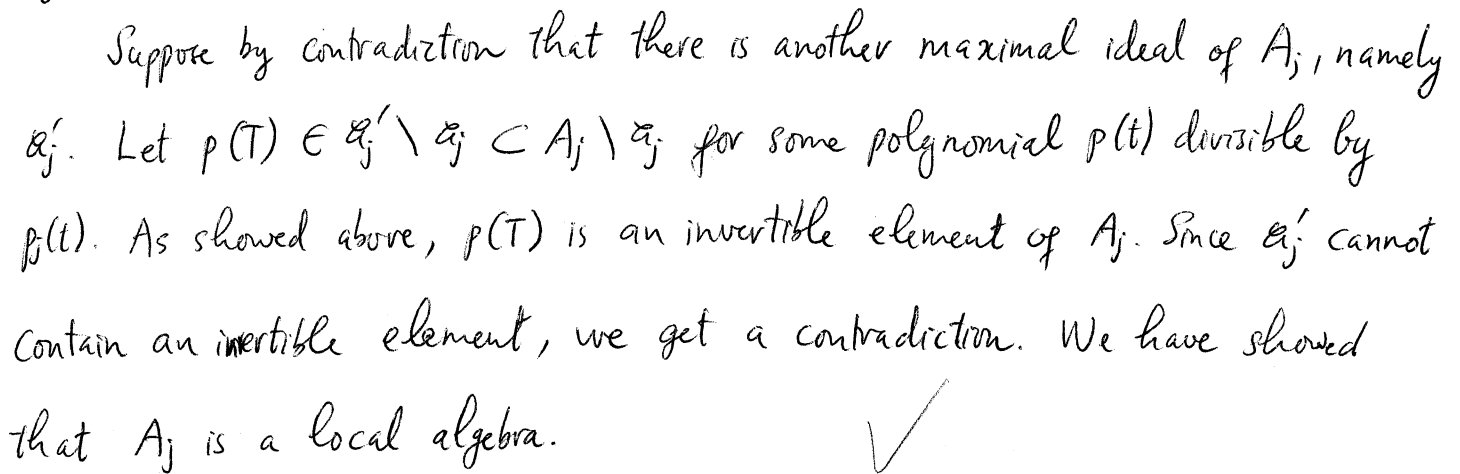 Suppose by contradiction that there is another maximal ideal of Aⱼ, namely
𝔞ⱼ′. Let p(T) ∈ 𝔞ⱼ′ \ 𝔞ⱼ ⊂ Aⱼ \ 𝔞ⱼ for some polynomial p(t) divisible by
pⱼ(t). As showed above, p(T) is an invertible element of Aⱼ. Since 𝔞ⱼ′ cannot
contain an invertible element, we get a contradiction. We have showed
that Aⱼ is a local algebra.